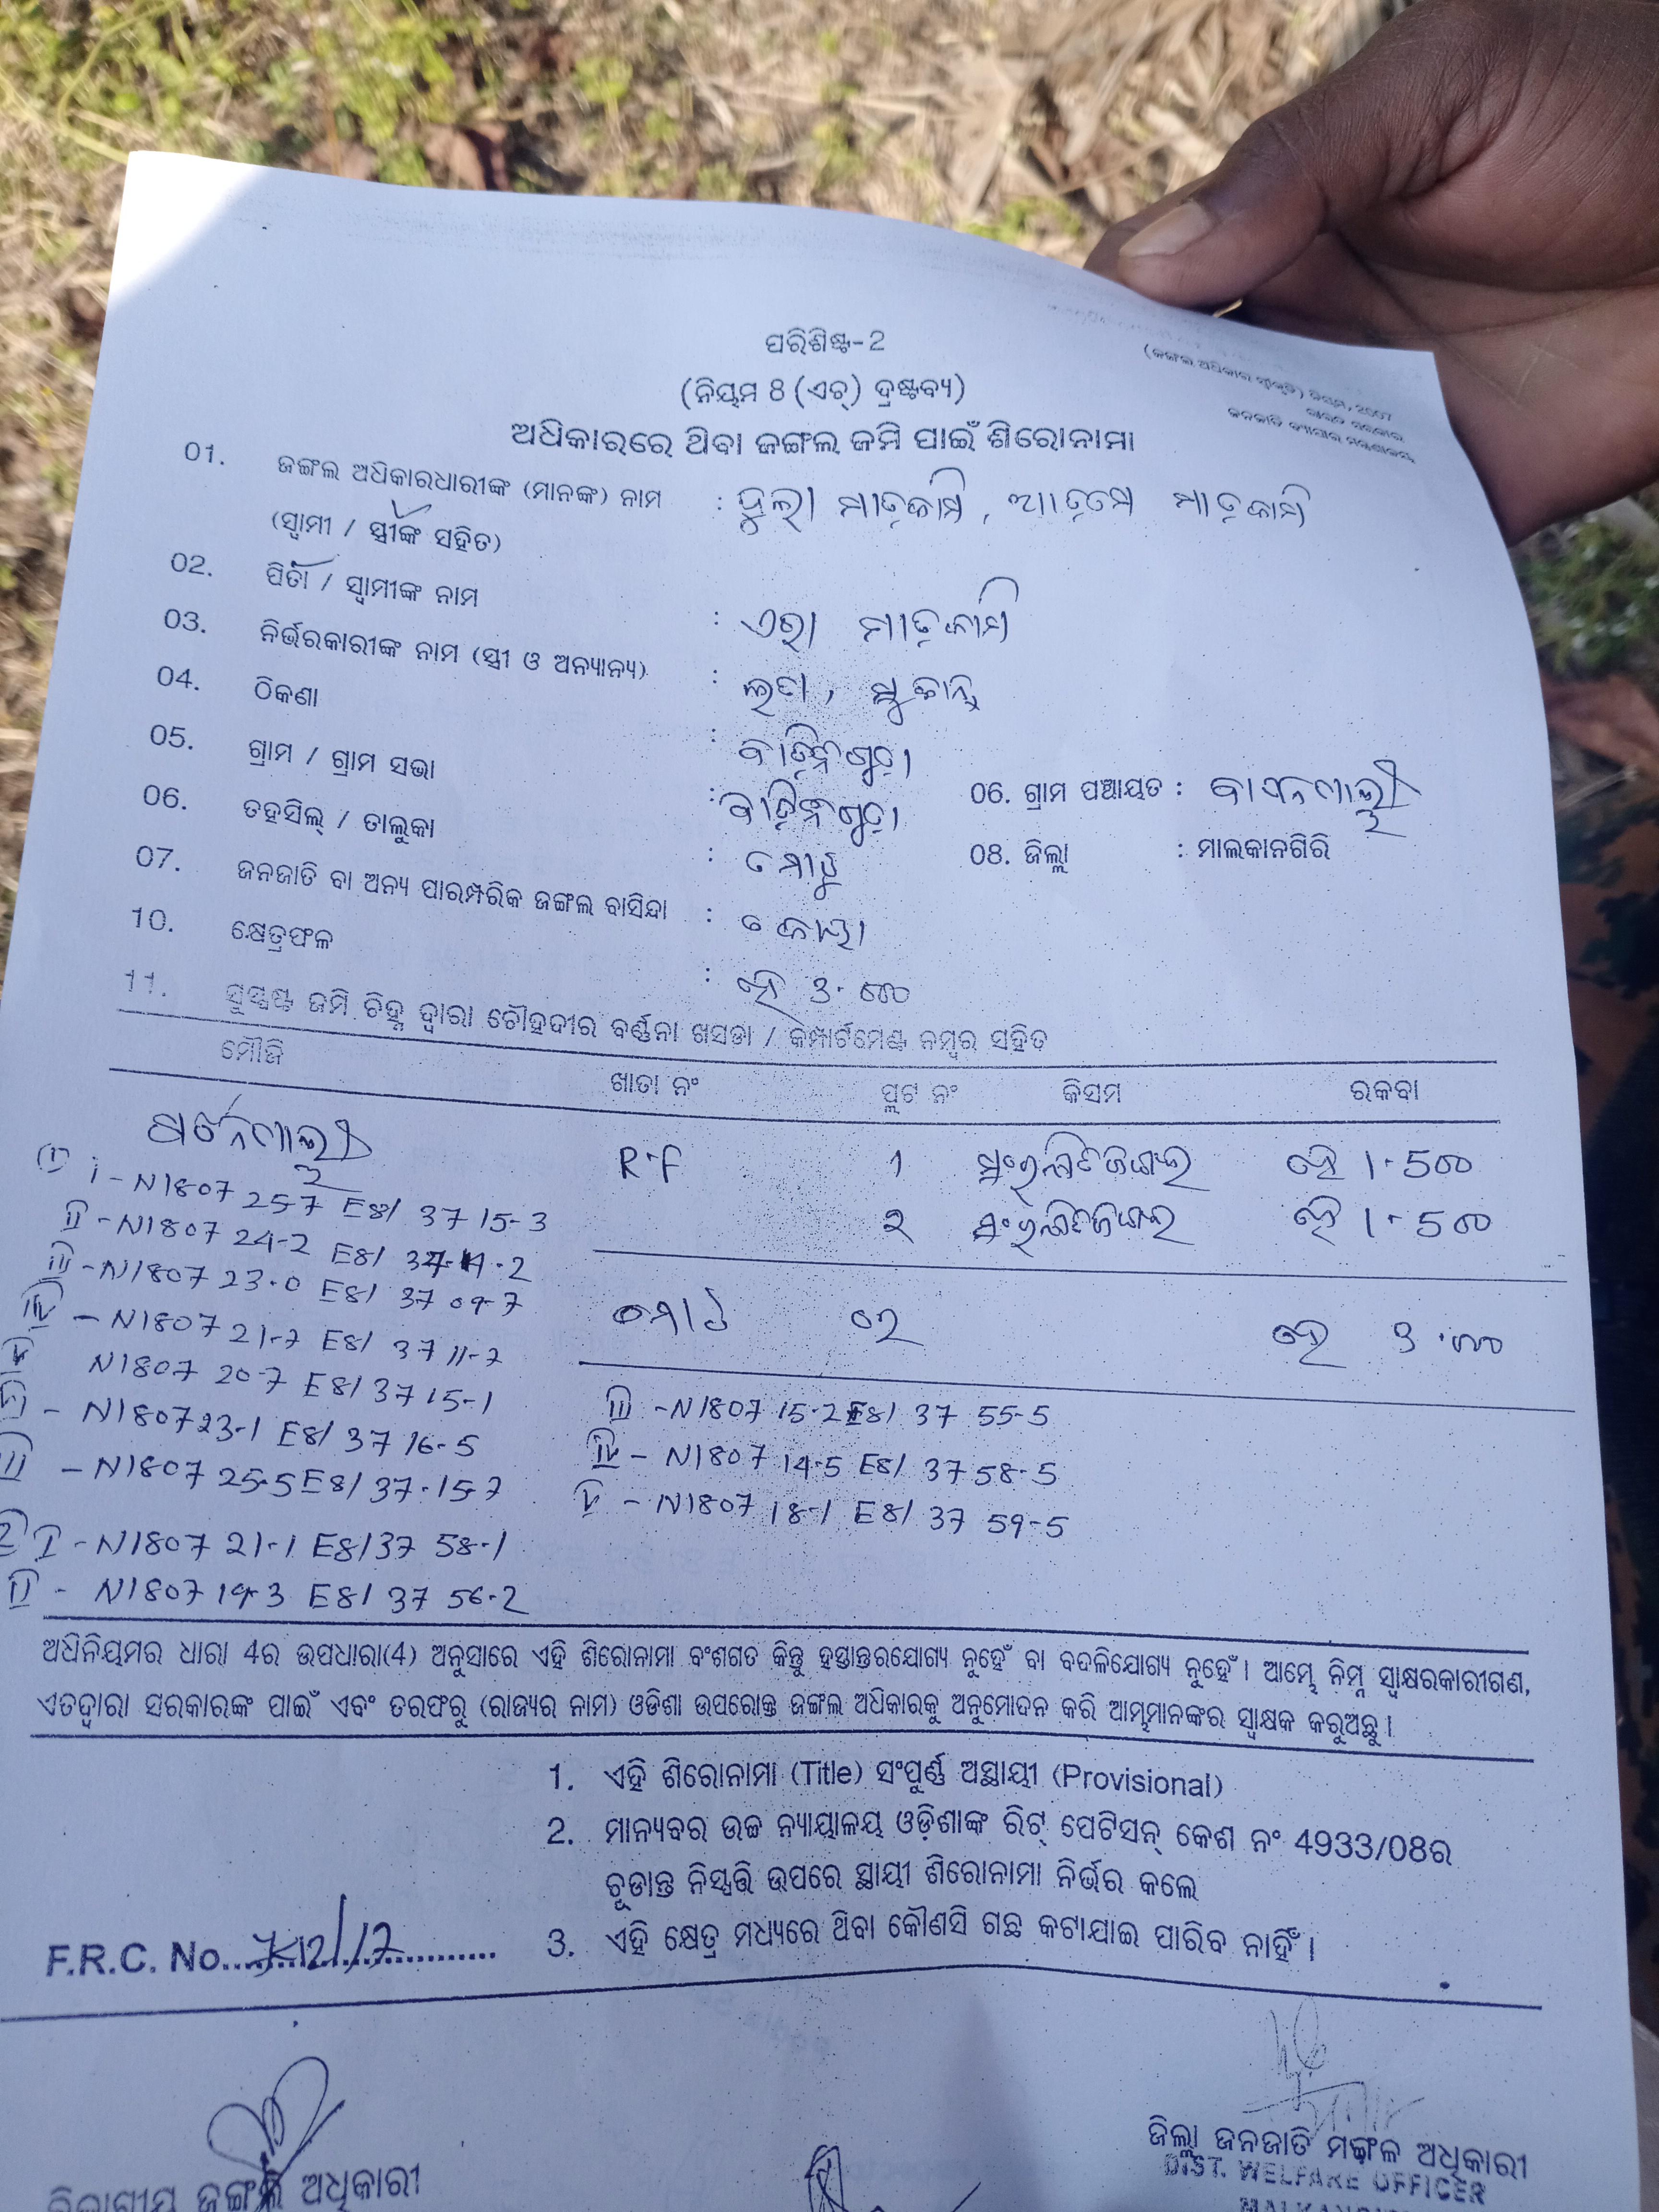 (ଜଙ୍ଗଲ ଅଧିକାର ସ୍ୱୀକୃତି) ନିୟମ, 2007
ଭାରତ ସରକାର
ଜନଜାତି ବ୍ୟାପାର ମନ୍ତ୍ରଣାଳୟ
ପରିଶିଷ୍ଟ-2
(ନିୟମ 8 (ଏଚ୍) ଦ୍ରଷ୍ଟବ୍ୟ)
ଅଧିକାରରେ ଥିବା ଜଙ୍ଗଲ ଜମି ପାଇଁ ଶିରୋନାମା
01. ଜଙ୍ଗଲ ଅଧିକାରଧାରୀଙ୍କ (ମାନଙ୍କ) ନାମ : ଦୁଲା ମାଡ଼କାମି, ମାଡ଼କାମି
(ସ୍ୱାମୀ / ସ୍ତ୍ରୀଙ୍କ ସହିତ)
02. ପିତା / ସ୍ୱାମୀଙ୍କ ନାମ : ଏରା ମାଡ଼କାମି
03. ନିର୍ଭରକାରୀଙ୍କ ନାମ (ସ୍ତ୍ରୀ ଓ ଅନ୍ୟାନ୍ୟ) :
04. ଠିକଣା :
05. ଗ୍ରାମ / ଗ୍ରାମ ସଭା : 06. ଗ୍ରାମ ପଞ୍ଚାୟତ :
06. ତହସିଲ୍ / ତାଲୁକା : ମୋଟୁ 08. ଜିଲ୍ଲା : ମାଲକାନଗିରି
07. ଜନଜାତି ବା ଅନ୍ୟ ପାରମ୍ପରିକ ଜଙ୍ଗଲ ବାସିନ୍ଦା : କୋୟା
10. କ୍ଷେତ୍ରଫଳ : ହେ ୩.୦୦
11. ସୁସ୍ପଷ୍ଟ ଜମି ଚିହ୍ନ ଦ୍ୱାରା ଚୌହଦୀର ବର୍ଣ୍ଣନା ଖସଡା / କମ୍ପାର୍ଟମେଣ୍ଟ ନମ୍ବର ସହିତ
ମୌଜି ଖାତା ନଂ ପ୍ଲଟ ନଂ କିସମ ରକବା
R.F ୧ ହେ 1.500
୨ ହେ 1.500
ମୋଟ ୨ ହେ ୩.୦୦
i - N1807 25-7 E81 37 15-3
ii - N1807 24-2 E81 37 .2
iii - N1807 23.0 E81 37 09-7
iv - N1807 21-7 E81 37 11-7
v N1807 20-7 E81 37 15-1
- N1807 23-1 E81 37 16-5
- N1807 25-5 E81 37.15-7
I - N1807 21-1 E81 37 58-1
II - N1807 19-3 E81 37 56-2
III - N1807 15-2 E81 37 55-5
IV - N1807 14-5 E81 37 58-5
V - N1807 18-1 E81 37 59-5
ଅଧିନିୟମର ଧାରା 4ର ଉପଧାରା(4) ଅନୁସାରେ ଏହି ଶିରୋନାମା ବଂଶଗତ କିନ୍ତୁ ହସ୍ତାନ୍ତରଯୋଗ୍ୟ ନୁହେଁ ବା ବଦଳିଯୋଗ୍ୟ ନୁହେଁ। ଆମ୍ଭେ ନିମ୍ନ ସ୍ୱାକ୍ଷରକାରୀଗଣ,
ଏତଦ୍ୱାରା ସରକାରଙ୍କ ପାଇଁ ଏବଂ ତରଫରୁ (ରାଜ୍ୟର ନାମ) ଓଡିଶା ଉପରୋକ୍ତ ଜଙ୍ଗଲ ଅଧିକାରକୁ ଅନୁମୋଦନ କରି ଆମ୍ଭମାନଙ୍କର ସ୍ୱାକ୍ଷକ କରୁଅଛୁ।
1. ଏହି ଶିରୋନାମା (Title) ସଂପୁର୍ଣ୍ଣ ଅସ୍ଥାୟୀ (Provisional)
2. ମାନ୍ୟବର ଉଚ୍ଚ ନ୍ୟାୟାଳୟ ଓଡ଼ିଶାଙ୍କ ରିଟ୍ ପେଟିସନ୍ କେଶ ନଂ 4933/08ର
ଚୂଡାନ୍ତ ନିସ୍ପତ୍ତି ଉପରେ ସ୍ଥାୟୀ ଶିରୋନାମା ନିର୍ଭର କଲେ
3. ଏହି କ୍ଷେତ୍ର ମଧ୍ୟରେ ଥିବା କୌଣସି ଗଛ କଟାଯାଇ ପାରିବ ନାହିଁ।
F.R.C. No.
ବିଭାଗୀୟ ଜଙ୍ଗଲ ଅଧିକାରୀ
ଜିଲ୍ଲା ଜନଜାତି ମଙ୍ଗଳ ଅଧିକାରୀ
DIST. WELFARE OFFICER